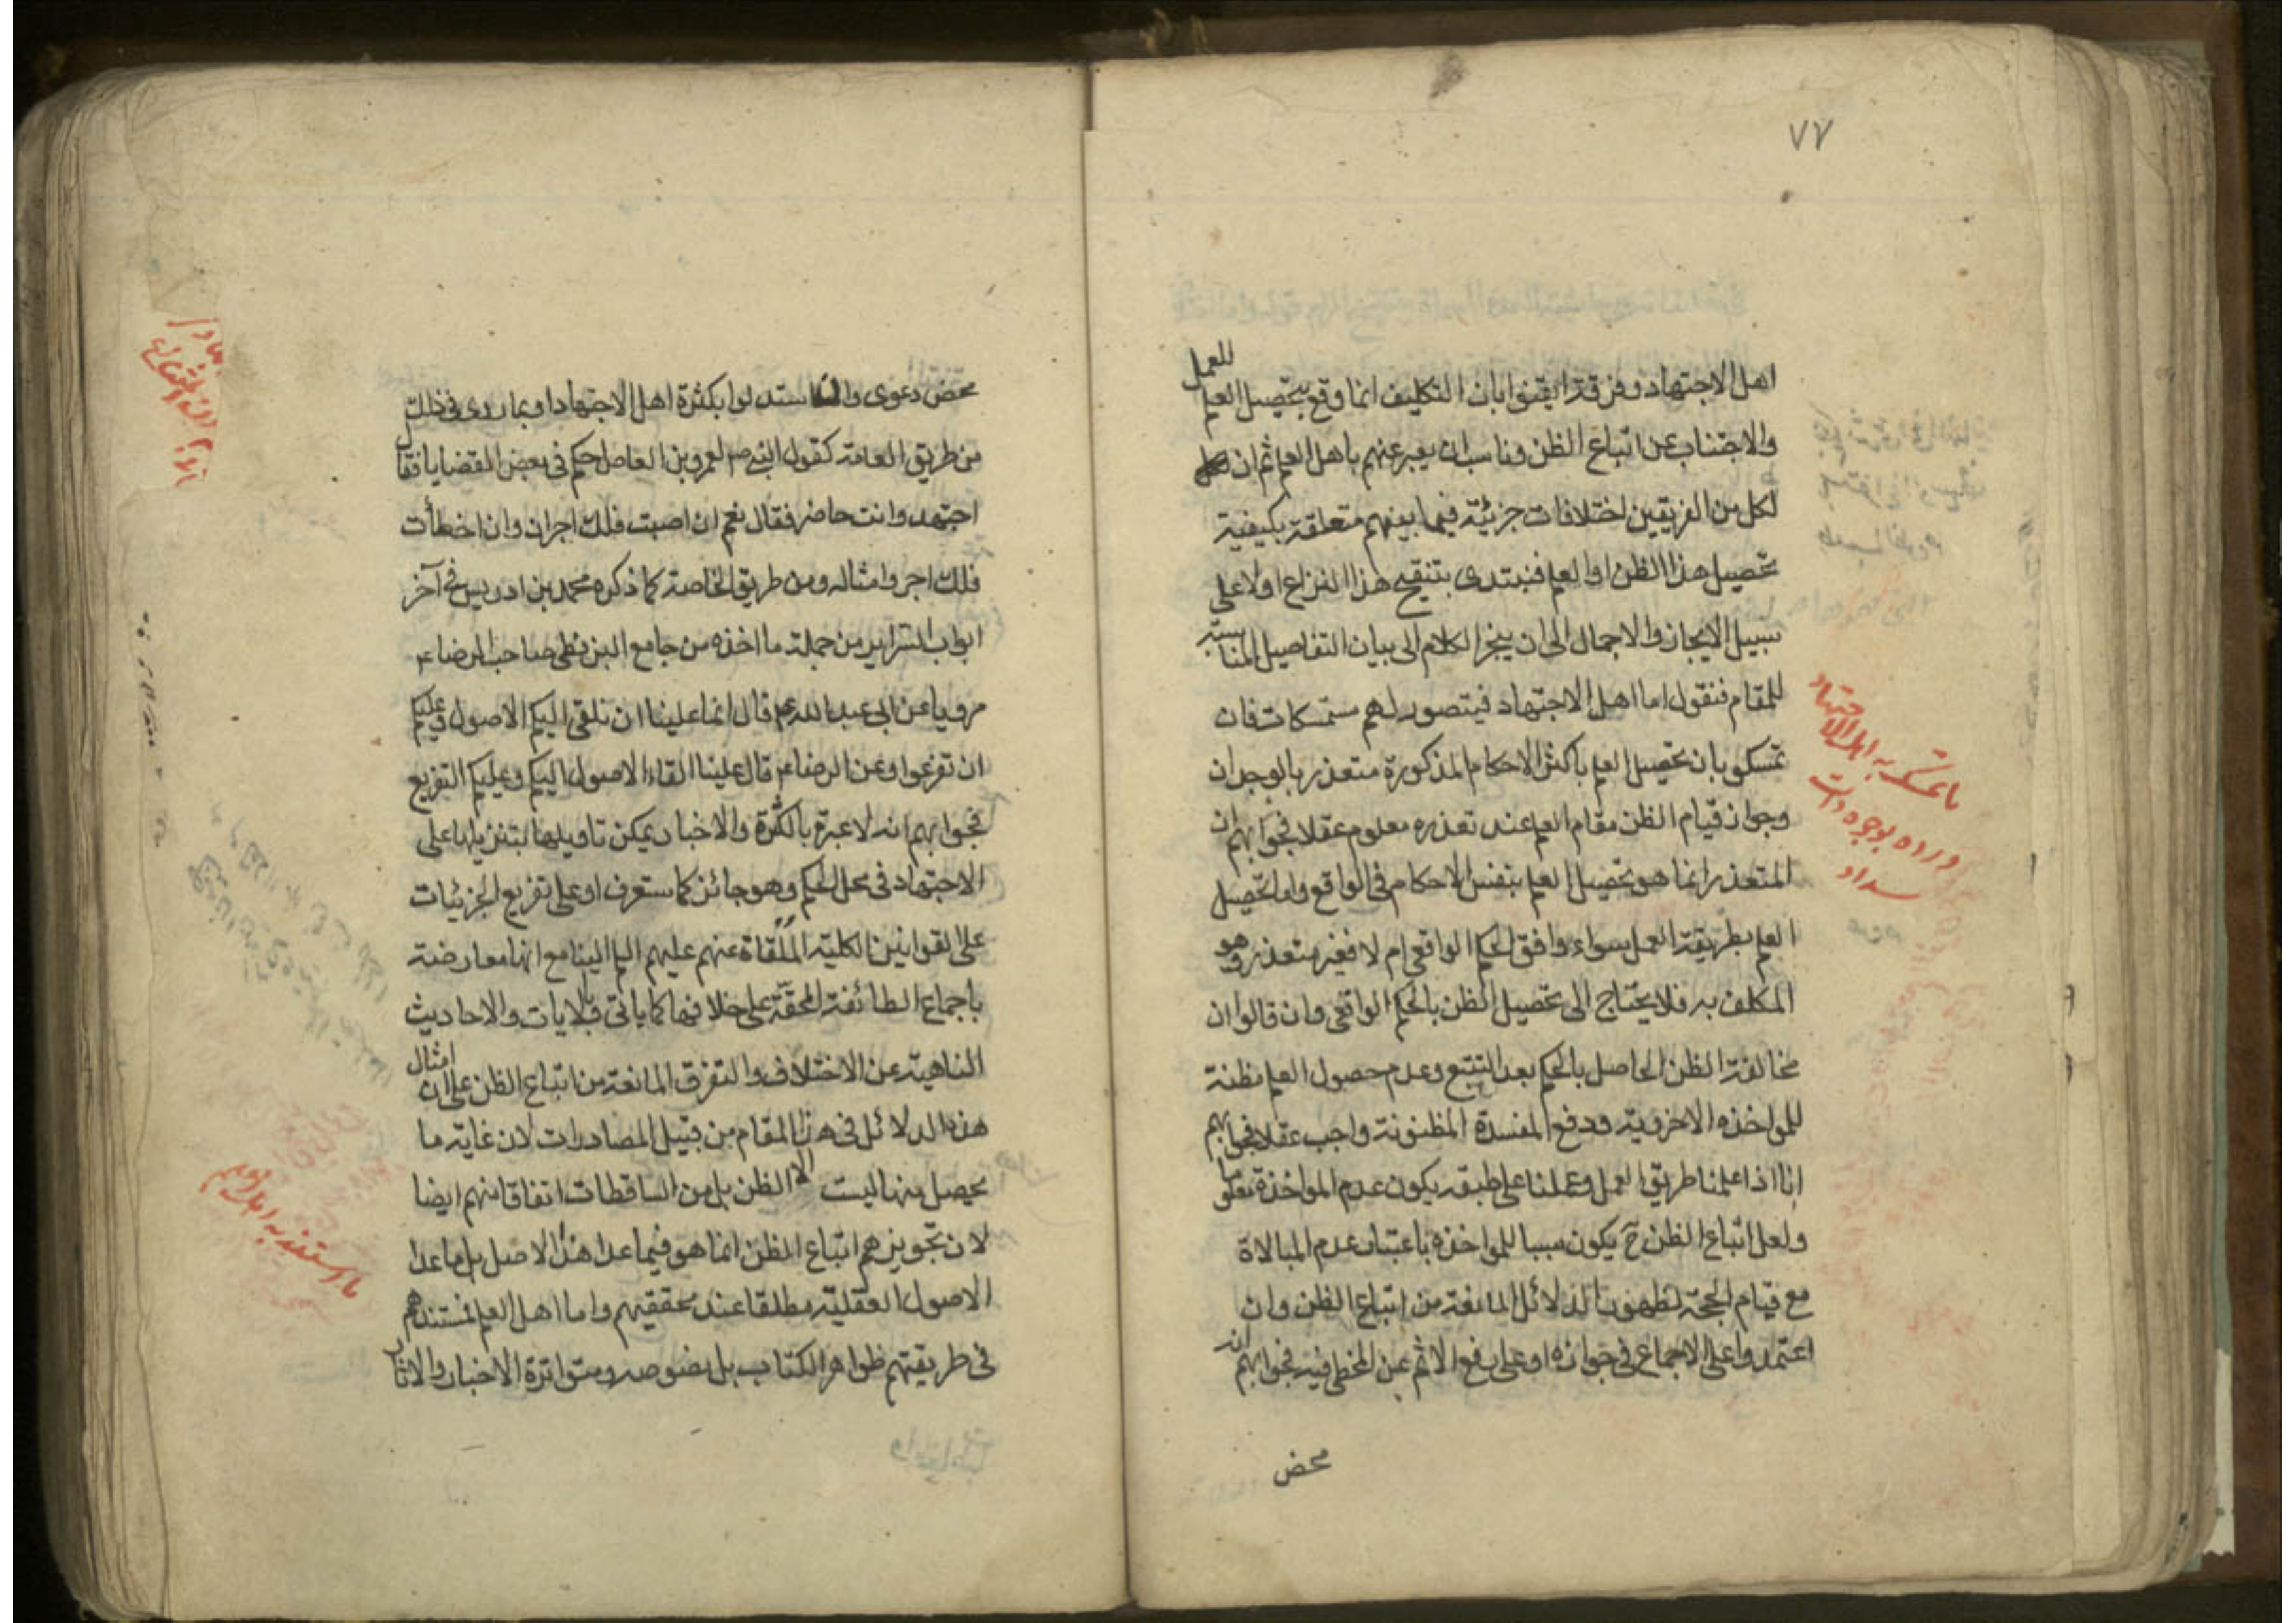 ٧٧
اهل الاجتهاد وفرقة ايقنوا بان التكليف انما وقع بتحصيل العلم للعمل
والاجتناب عن اتباع الظن وناسب ان يعبر عنهم باهل العلم ثم ان
لكل من الفريقين اختلافات جزئية فيما بينهم متعلقة بكيفية
تحصيل هذا الظن او العلم فنبتدى بتنقيح هذا النزاع اولا على
سبيل الايجاز والاجمال الى ان ينجر الكلام الى بيان التفاصيل المناسبة
للمقام فنقول اما اهل الاجتهاد فيتصور لهم مستمسكات فان
تمسكوا بان تحصيل العلم باكثر الاحكام المذكورة متعذر بالوجدان
وجواز قيام الظن مقام العلم عند تعذره معلوم عقلا فجوابهم ان
المتعذر انما هو تحصيل العلم بنفس الاحكام فى الواقع واما تحصيل
العلم بطريقة العمل سواء وافق الحكم الواقعى ام لا فغير متعذر وهو
المكلف به فلا يحتاج الى تحصيل الظن بالحكم الواقعى وان قالوا ان
مخالفة الظن الحاصل بالحكم بعد التتبع وعدم حصول العلم مظنة
للمواخذه الاخروية ودفع المفسدة المظنونة واجب عقلا فجوابهم
انا اذا علمنا طريق العمل وعملنا على طبقه يكون عدم المواخذة معلوما
ولعل اتباع الظن ح يكون سببا للمواخذه باعتبار عدم المبالاة
مع قيام الحجة لظهور الدلائل المانعة من اتباع الظن وان
اعتمدوا على الاجماع فى جوازه او على رفع الاثم عن المخطى فيه فجوابهم انه
محض
ما تمسك به اهل الاجتهاد
ورده بوجوه ذات
سداد
محض دعوى وان استدلوا بكثرة اهل الاجتهاد او بما روى فى ذلك
من طريق العامة كقول النبى ص لعمرو بن العاص احكم فى بعض القضايا فقال
اجتهد وانت حاضر فقال نعم ان اصبت فلك اجران وان اخطأت
فلك اجر وامثاله ومن طريق الخاصة كما ذكره محمد بن ادريس فى آخر
ابواب السراير من جملة ما اخذه من جامع البزنطى صاحب الرضا ع
مرويا عن ابى عبد الله ع قال انما علينا ان نلقى اليكم الاصول وعليكم
ان تفرعوا وعن الرضا ع قال علينا القاء الاصول اليكم وعليكم التفريع
فجوابهم انه لا عبرة بالكثرة والاخبار يمكن تاويلها بتنزيلها على
الاجتهاد فى محل الحكم وهو جائز كما ستعرف او على تفريع الجزئيات
على القوانين الكلية الملقاة عنهم عليهم السلم الينا مع انها معارضة
باجماع الطائفة المحقة على خلافها كما ياتى وبالايات والاحاديث
الناهية عن الاختلاف والتفرق المانعة من اتباع الظن على ان امثال
هذه الدلائل فى هذا المقام من قبيل المصادرات لان غاية ما
يحصل منها ليست الا الظن بل من الساقطات اتفاقا منهم ايضا
لان تجويزهم اتباع الظن انما هو فيما عدا هذا الاصل بل ما عدا
الاصول العقلية مطلقا عند محققيهم واما اهل العلم فمستندهم
فى طريقتهم ظواهر الكتاب بل نصوصه ومتواترة الاخبار والاثار
ما استند به اهل العلم